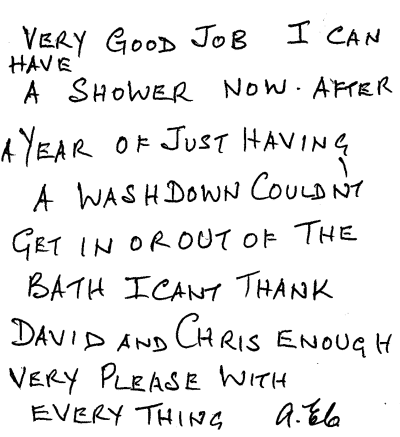 VERY GOOD JOB I CAN
HAVE
A SHOWER NOW. AFTER
A YEAR OF JUST HAVING
A WASHDOWN COULDN'T
GET IN OR OUT OF THE
BATH I CANT THANK
DAVID AND CHRIS ENOUGH
VERY PLEASE WITH
EVERY THING